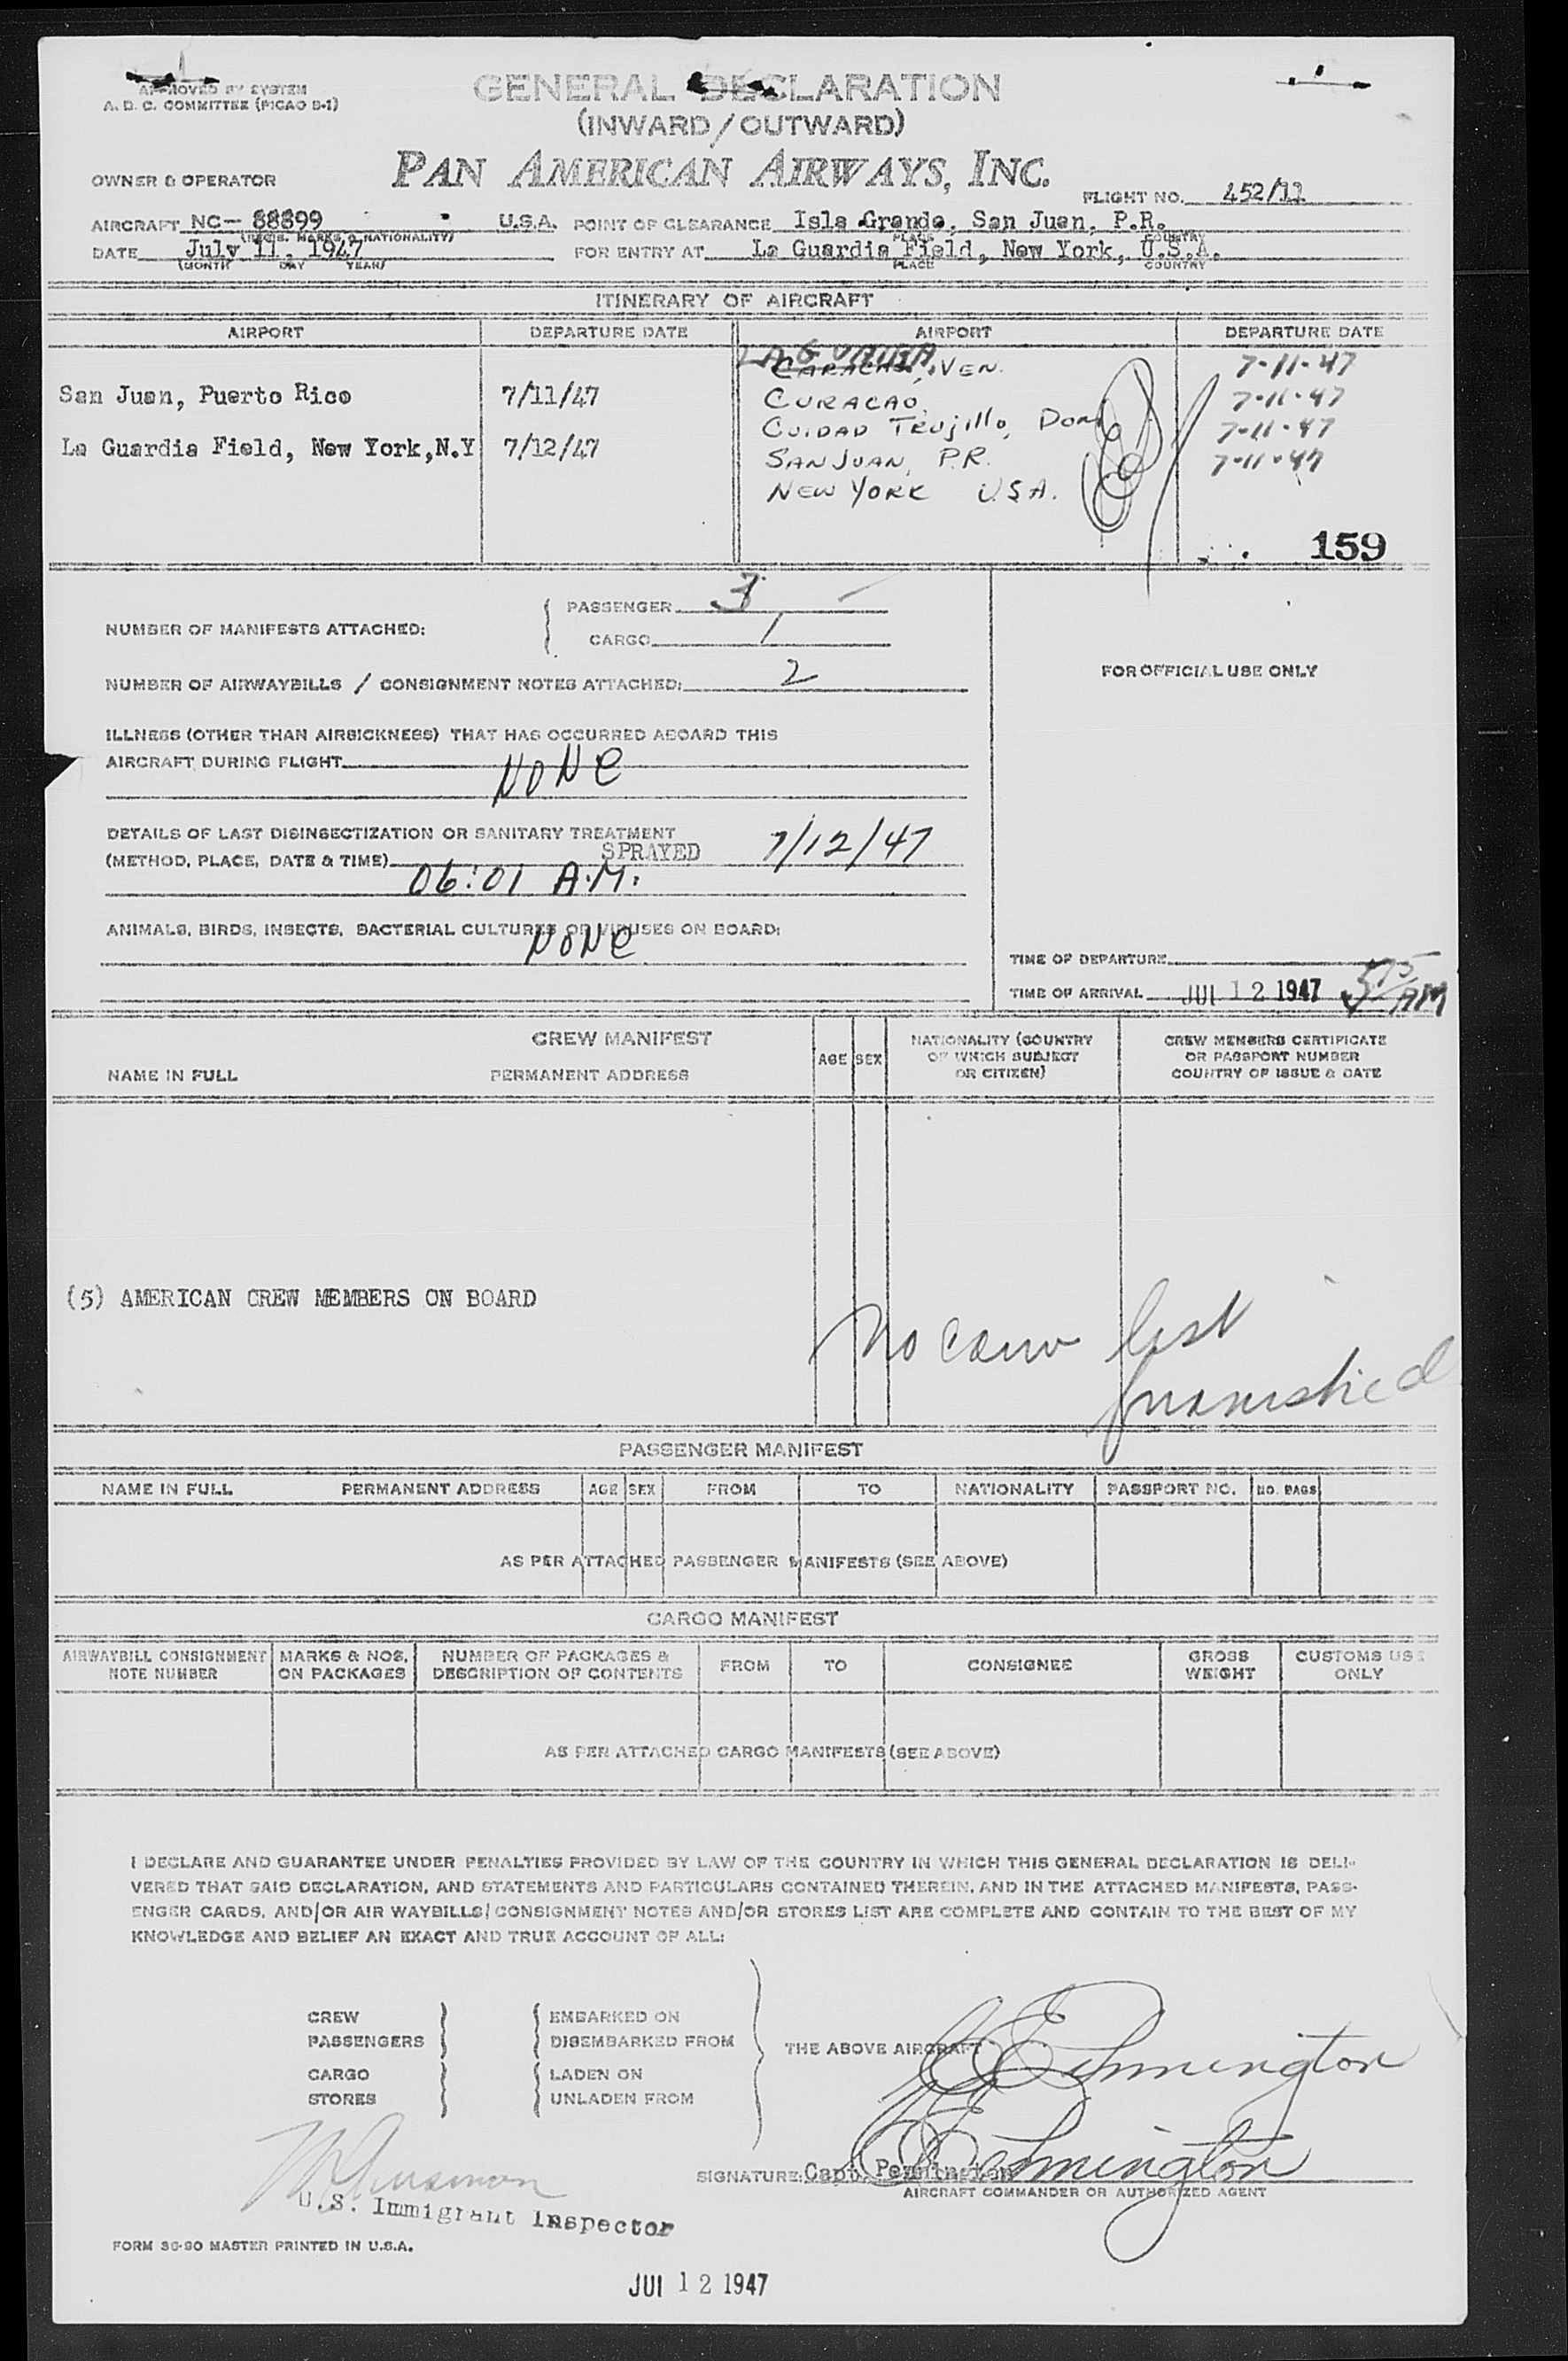 APPROVED BY SYSTEM
A. D. C. COMMITTEE (PICAO B-1)
GENERAL DECLARATION
(INWARD / OUTWARD)
PAN AMERICAN AIRWAYS, INC.
OWNER & OPERATOR
FLIGHT NO. 452/11
AIRCRAFT NC- 88899 U.S.A. POINT OF CLEARANCE Isla Grande, San Juan, P.R.
(REGIS. MARKS & NATIONALITY) PLACE COUNTRY
DATE July 11, 1947 FOR ENTRY AT La Guardia Field, New York, U.S.A.
(MONTH DAY YEAR) PLACE COUNTRY
ITINERARY OF AIRCRAFT
AIRPORT DEPARTURE DATE AIRPORT DEPARTURE DATE
LA GUAIRA
CARACAS, VEN. 7-11-47
San Juan, Puerto Rico 7/11/47 CURACAO 7-11-47
CUIDAD TRUJILLO, DOM 7-11-47
La Guardia Field, New York,N.Y 7/12/47 SAN JUAN, P.R. 7-11-47
NEW YORK U.S.A.
159
NUMBER OF MANIFESTS ATTACHED: PASSENGER 3
CARGO 1
NUMBER OF AIRWAYBILLS / CONSIGNMENT NOTES ATTACHED: 2
FOR OFFICIAL USE ONLY
ILLNESS (OTHER THAN AIRSICKNESS) THAT HAS OCCURRED ABOARD THIS
AIRCRAFT DURING FLIGHT NONE
DETAILS OF LAST DISINSECTIZATION OR SANITARY TREATMENT
(METHOD, PLACE, DATE & TIME) SPRAYED 7/12/47
06:01 A.M.
ANIMALS, BIRDS, INSECTS, BACTERIAL CULTURES OR VIRUSES ON BOARD:
NONE
TIME OF DEPARTURE
TIME OF ARRIVAL JUL 12 1947 AM
CREW MANIFEST
NAME IN FULL PERMANENT ADDRESS AGE SEX NATIONALITY (COUNTRY OF WHICH SUBJECT OR CITIZEN) CREW MEMBERS CERTIFICATE OR PASSPORT NUMBER COUNTRY OF ISSUE & DATE
(5) AMERICAN CREW MEMBERS ON BOARD
No crew list
furnished
PASSENGER MANIFEST
NAME IN FULL PERMANENT ADDRESS AGE SEX FROM TO NATIONALITY PASSPORT NO. NO. BAGS
AS PER ATTACHED PASSENGER MANIFESTS (SEE ABOVE)
CARGO MANIFEST
AIRWAYBILL CONSIGNMENT NOTE NUMBER MARKS & NOS. ON PACKAGES NUMBER OF PACKAGES & DESCRIPTION OF CONTENTS FROM TO CONSIGNEE GROSS WEIGHT CUSTOMS USE ONLY
AS PER ATTACHED CARGO MANIFESTS (SEE ABOVE)
I DECLARE AND GUARANTEE UNDER PENALTIES PROVIDED BY LAW OF THE COUNTRY IN WHICH THIS GENERAL DECLARATION IS DELI-
VERED THAT SAID DECLARATION, AND STATEMENTS AND PARTICULARS CONTAINED THEREIN, AND IN THE ATTACHED MANIFESTS, PASS-
ENGER CARDS, AND/OR AIR WAYBILLS/CONSIGNMENT NOTES AND/OR STORES LIST ARE COMPLETE AND CONTAIN TO THE BEST OF MY
KNOWLEDGE AND BELIEF AN EXACT AND TRUE ACCOUNT OF ALL:
CREW EMBARKED ON
PASSENGERS DISEMBARKED FROM
THE ABOVE AIRCRAFT
CARGO LADEN ON
STORES UNLADEN FROM
SIGNATURE: Capt. Pennington
AIRCRAFT COMMANDER OR AUTHORIZED AGENT
U.S. Immigrant Inspector
FORM 36-90 MASTER PRINTED IN U.S.A.
JUL 12 1947